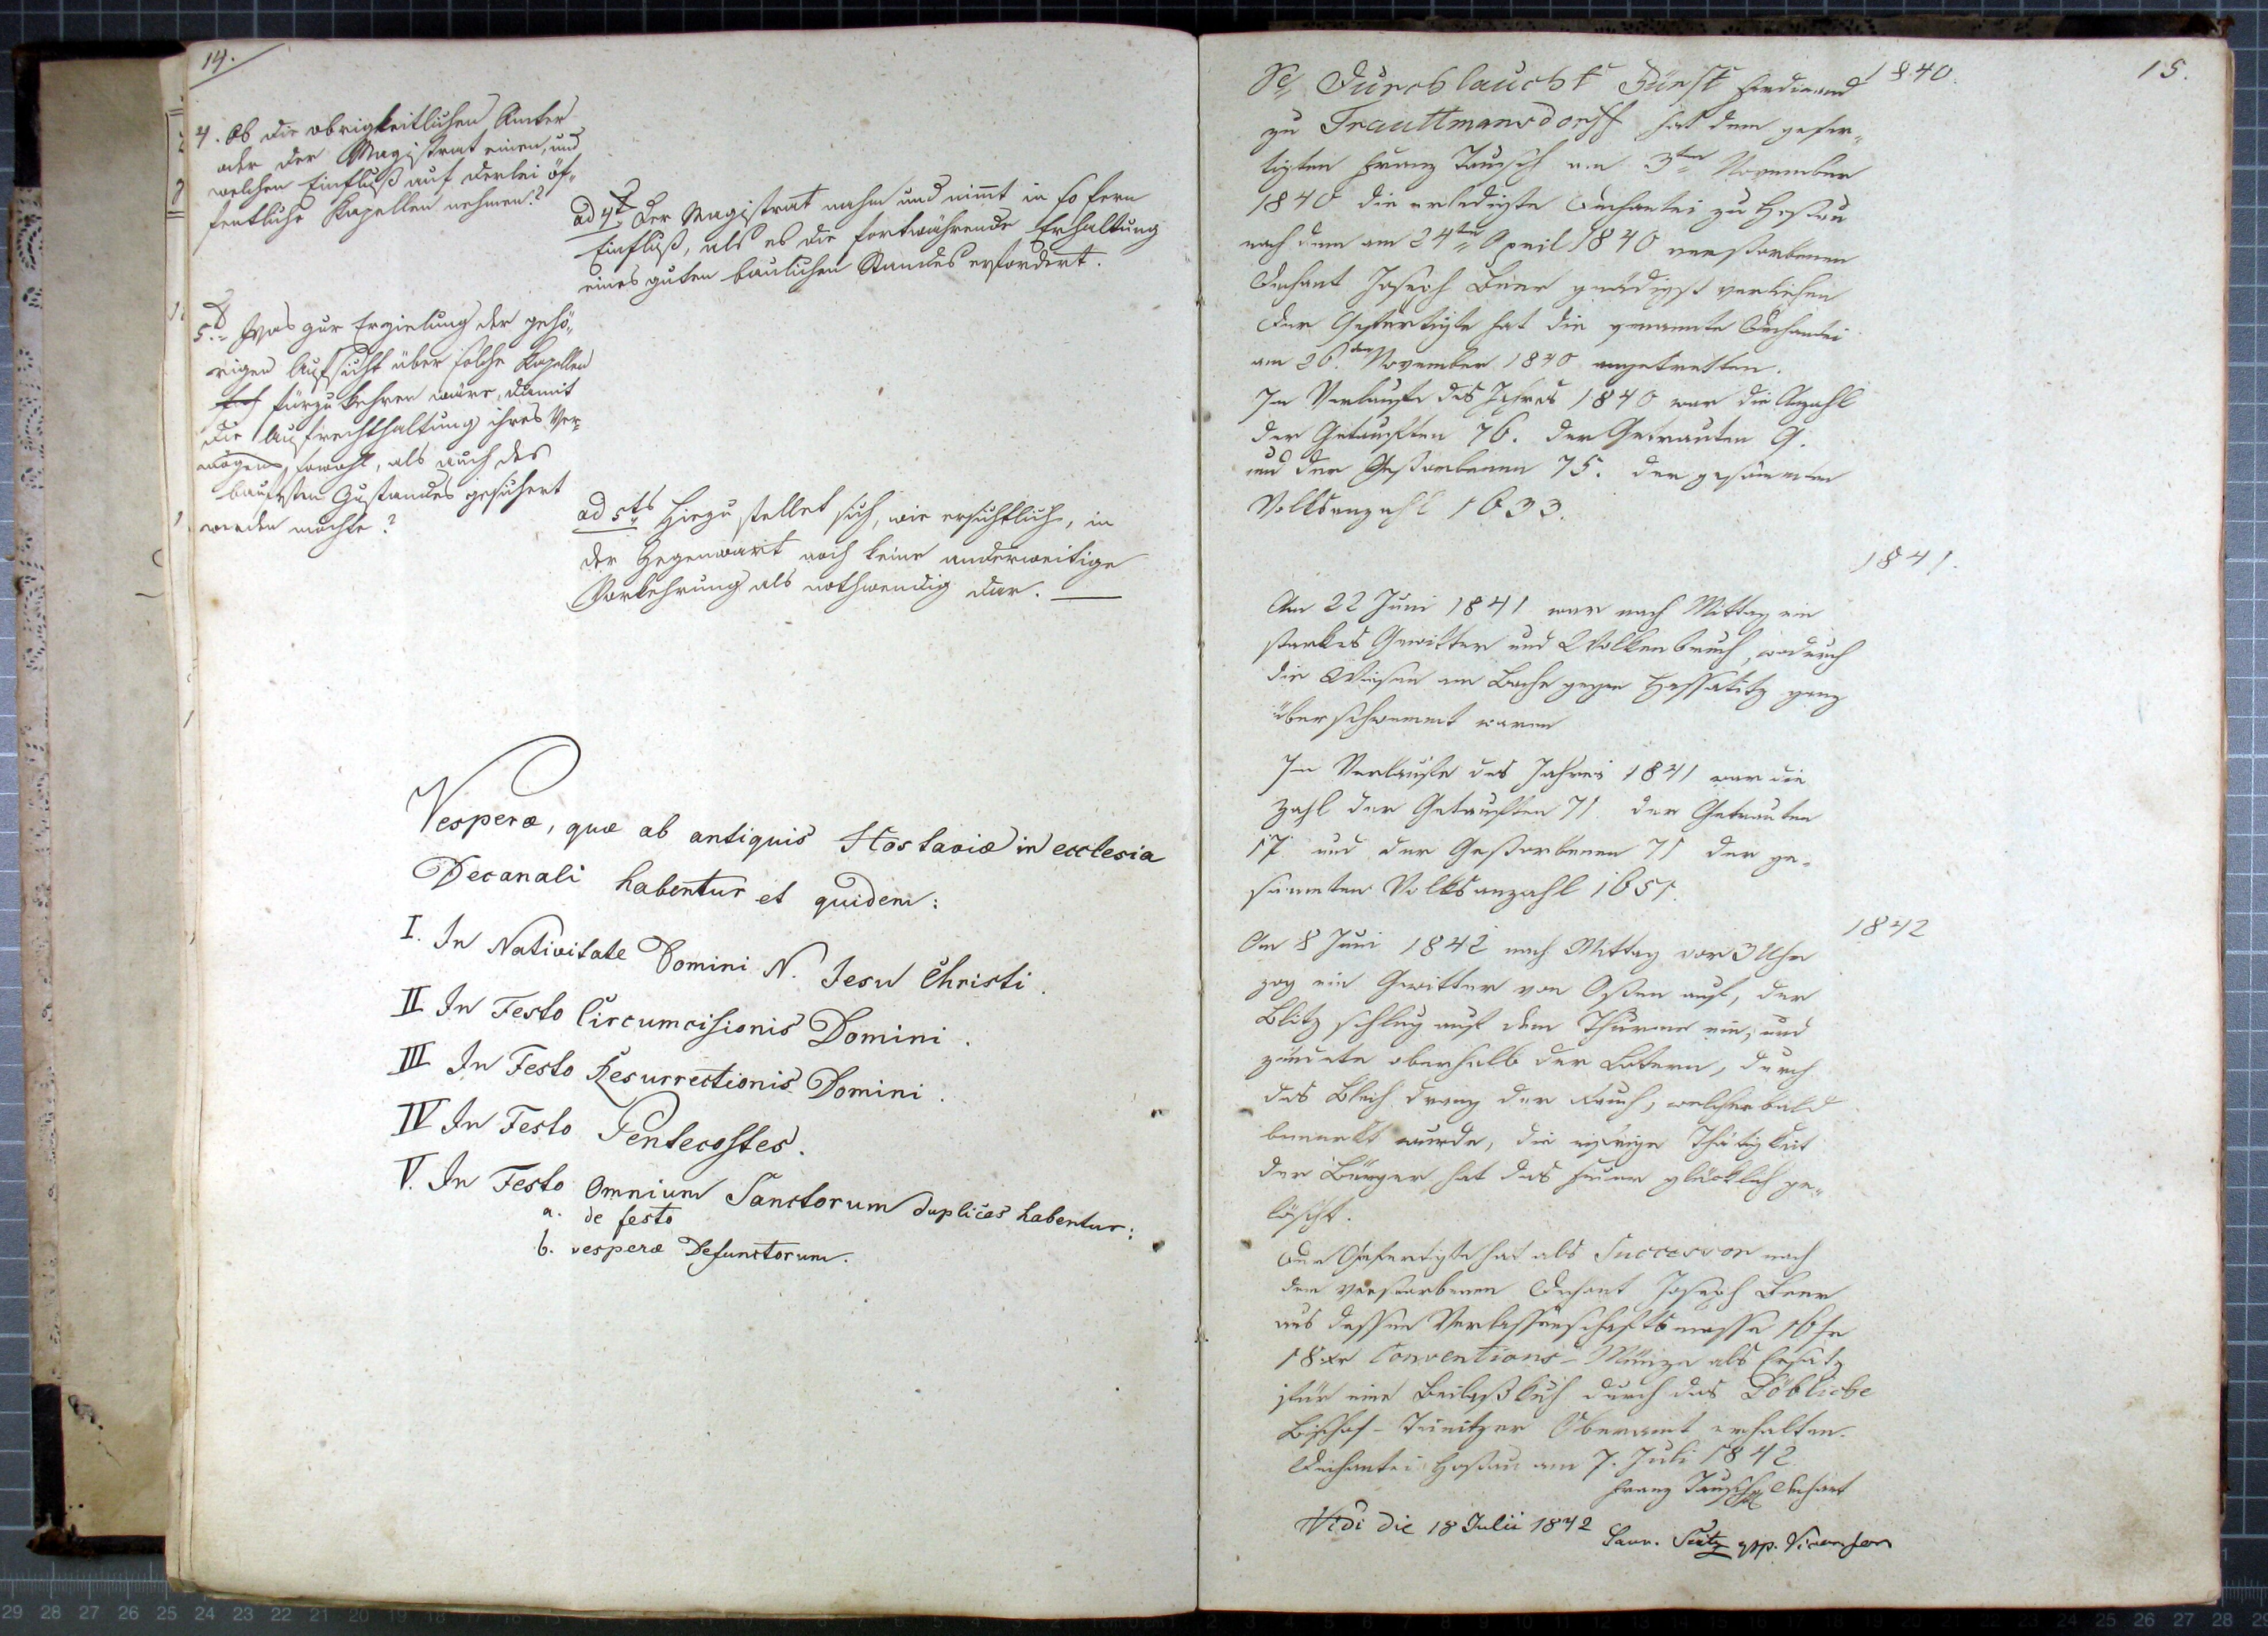 14.
4. Ob die obrigkeitlichen Ämter
oder der Magistrat einen, und
welchen Einfluß auf derlei öf-
fentliche Kapellen nehmen?
ad 4t Der Magistrat nahm und nimt in so fern
Einfluß, als es die fortwährende Erhaltung
eines guten baulichen Standes erfordert.
5t. Was zur Erzielung der gehö-
rigen Aufsicht über solche Kapellen
fürzukehren wäre, damit
die Aufrechthaltung ihres Ver-
mögens sowohl, als auch des
baufesten Zustandes gesichert
werden möchte?
ad 5ts Hiezu stellet sich, wie ersichtlich, in
der Gegenwart noch keine anderweitige
Vorkehrung als nothwendig dar.
Vesperæ, quæ ab antiquis Hostaviæ in ecclesia
Decanali habentur et quidem:
I. In Nativitate Domini N. Jesu Christi.
II In Festo Circumcisionis Domini.
III In Festo Resurrectionis Domini.
IV In Festo Pentecostes.
V. In Festo Omnium Sanctorum duplices habentur:
a. de festo
b. vesperæ Defunctorum.
15.
1840.
Se Durchlaucht Fürst Ferdinand
zu Trauttmansdorff hat dem gefer-
tigten Franz Tausch am 3ten November
1840 die erledigte Dechantei zu Hostau
nach dem am 24ten April 1840 verstorbenen
Dechant Joseph Beer gnädigst verliehen
Der Gefertigte hat die genannte Dechantei
am 26. November 1840 angetretten.
Im Verlaufe des Jahres 1840 war die Anzahl
der Getauften 76. der Getrauten 9.
und der Gestorbenen 75. der gesammten
Volksanzahl 1633.
1841.
Am 22 Juni 1841 war nach Mittag ein
starkes Gewitter und Wolkenbruch, wodurch
die Wiesen am Bache gegen Hessatitz ganz
überschwemmt waren
Im Verlaufe des Jahres 1841 war die
Zahl der Getauften 71. der Getrauten
17 und der Gestorbenen 71 der ge-
sammten Volksanzahl 1651.
1842
Am 8 Juni 1842 nach Mittag vor 3 Uhr
zog ein Gewitter von Osten auf, der
Blitz schlug auf dem Thurme ein, und
zündete oberhalb der Latern, durch
das Blech drang der Rauch, welcher bald
bemerkt wurde, die eifrige Thätigkeit
der Bürger hat das Feuer glücklich ge-
löscht.
Der Gefertigte hat als Successor nach
dem verstorbenen Dechant Joseph Beer
aus dessen Verlassenschaftsmasse 16 fr
18 xr Conventions-Münze als Ersatz
für eine Beilaßkuh durch das Löbliche
Bischof-Teinitzer Oberamt erhalten.
Dechantei Hostau am 7. Juli 1842.
Franz Tausch Dechant
Vidi die 18 Julii 1842